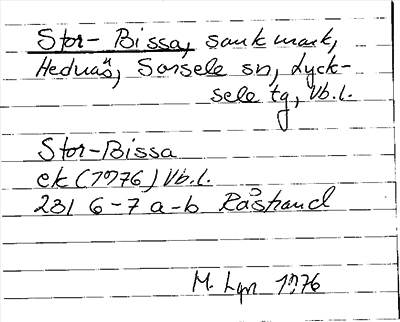 Stor-Bissa, sank mark,
Sorsele sn, Lyck-
sele tg, Vb.l.
Stor-Bissa
ek (1976) Vb.l.
231 6-7 a-b Råstrand
M. 1976